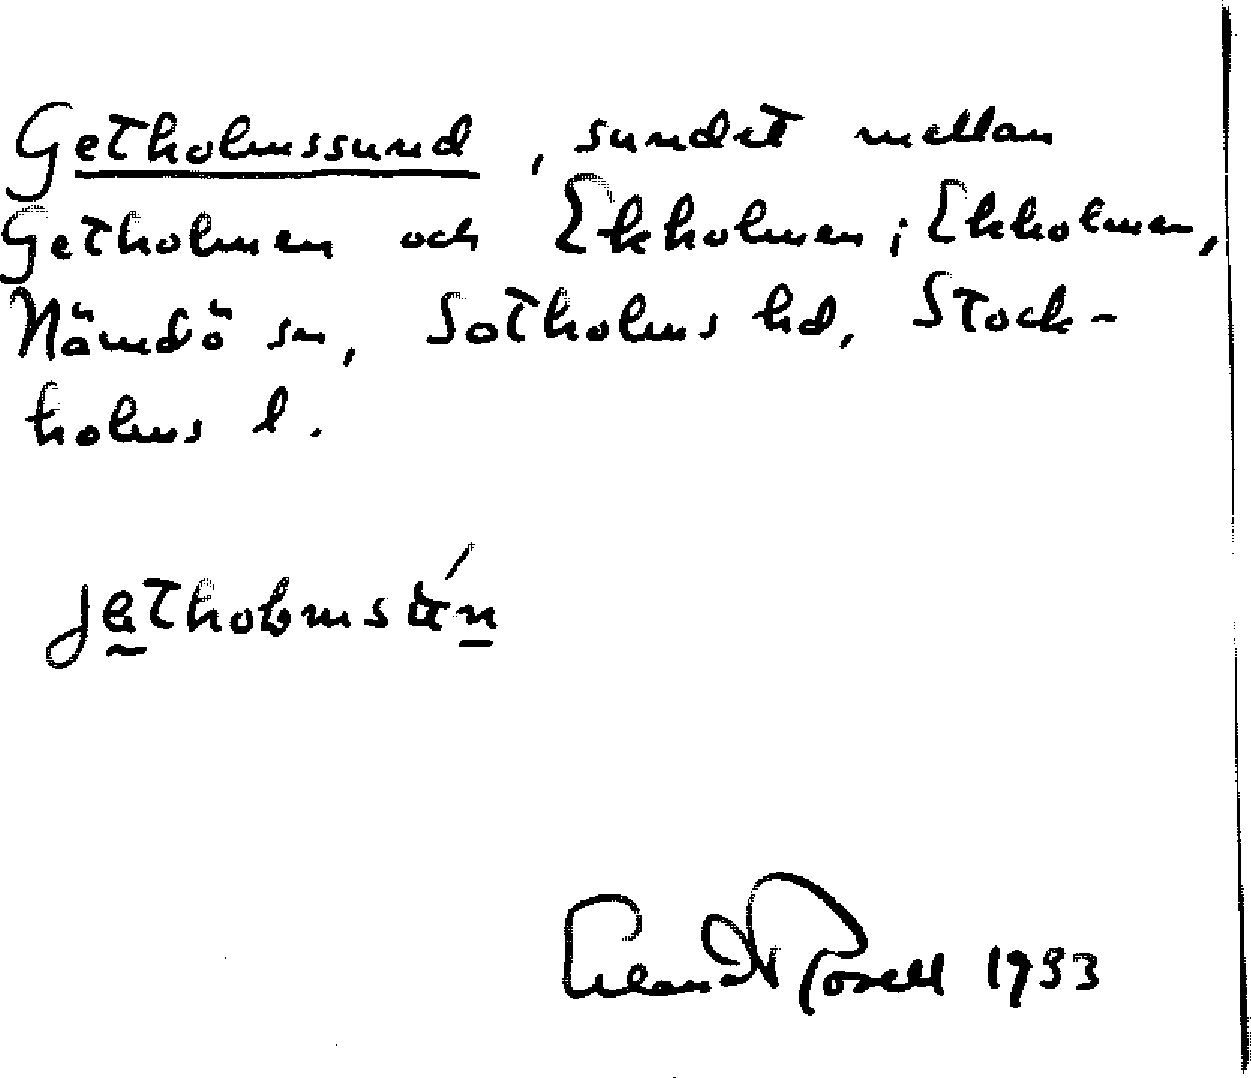 Getholmssund, sundet mellan
Getholmen och Ekholmen; Ekholmen,
Nämdö sn, Sotholms hd, Stock-
holms l.
Erland Rosell 1933